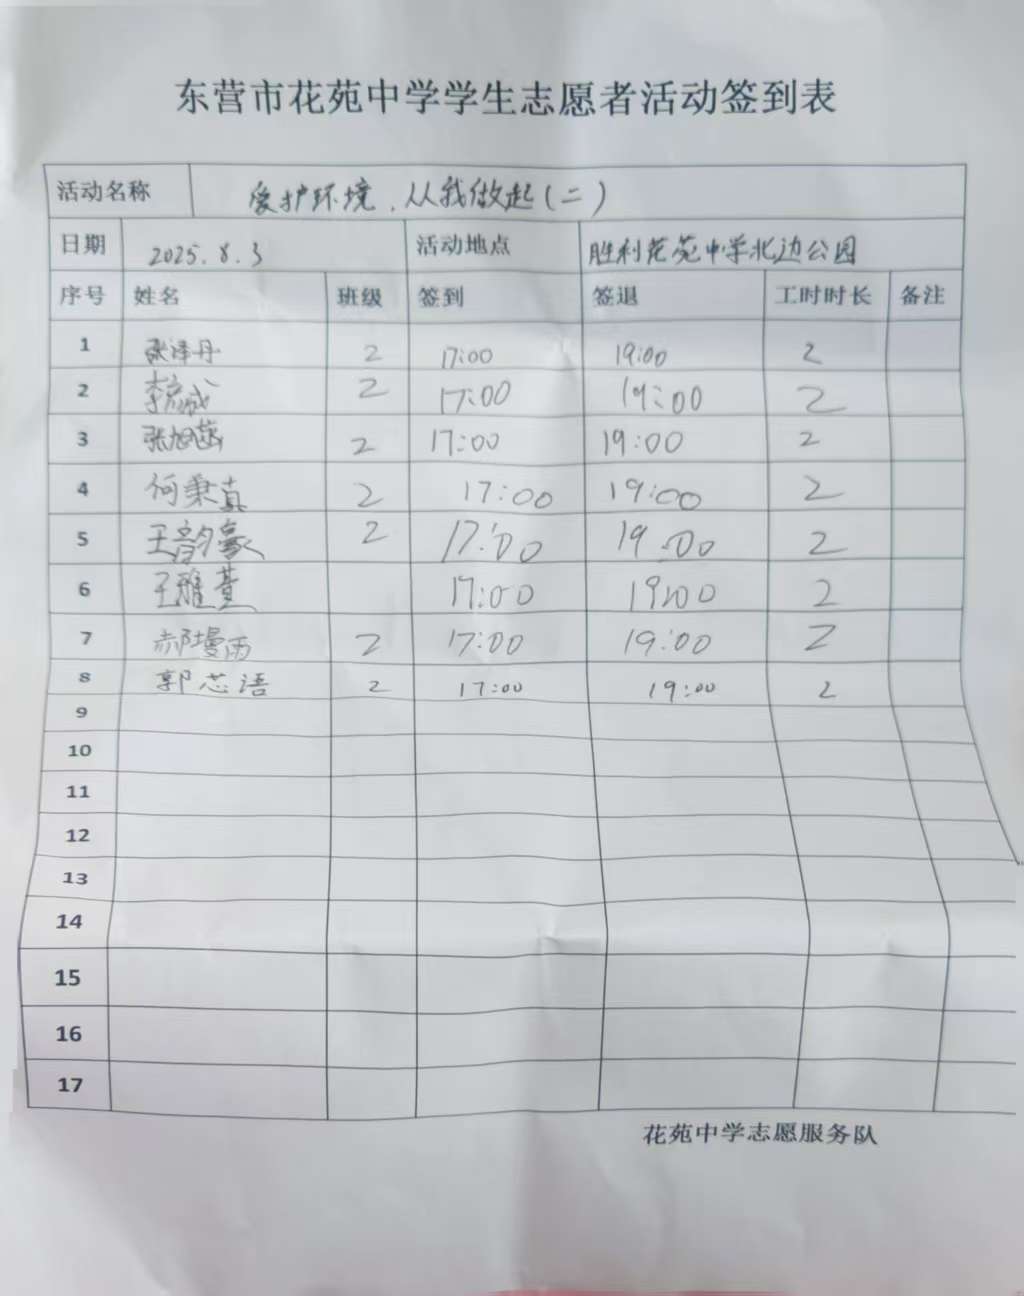 东营市花苑中学学生志愿者活动签到表
活动名称 爱护环境，从我做起（二）
日期 2025.8.3 活动地点 胜利花苑中学北边公园
序号 姓名 班级 签到 签退 工时时长 备注
1 张泽丹 2 17:00 19:00 2
2 2 17:00 19:00 2
3 2 17:00 19:00 2
4 何秉真 2 17:00 19:00 2
5 王韵豪 2 17:00 19:00 2
6 王雅萱 17:00 19:00 2
7 郝墁雨 2 17:00 19:00 2
8 郭芯语 2 17:00 19:00 2
9
10
11
12
13
14
15
16
17
花苑中学志愿服务队